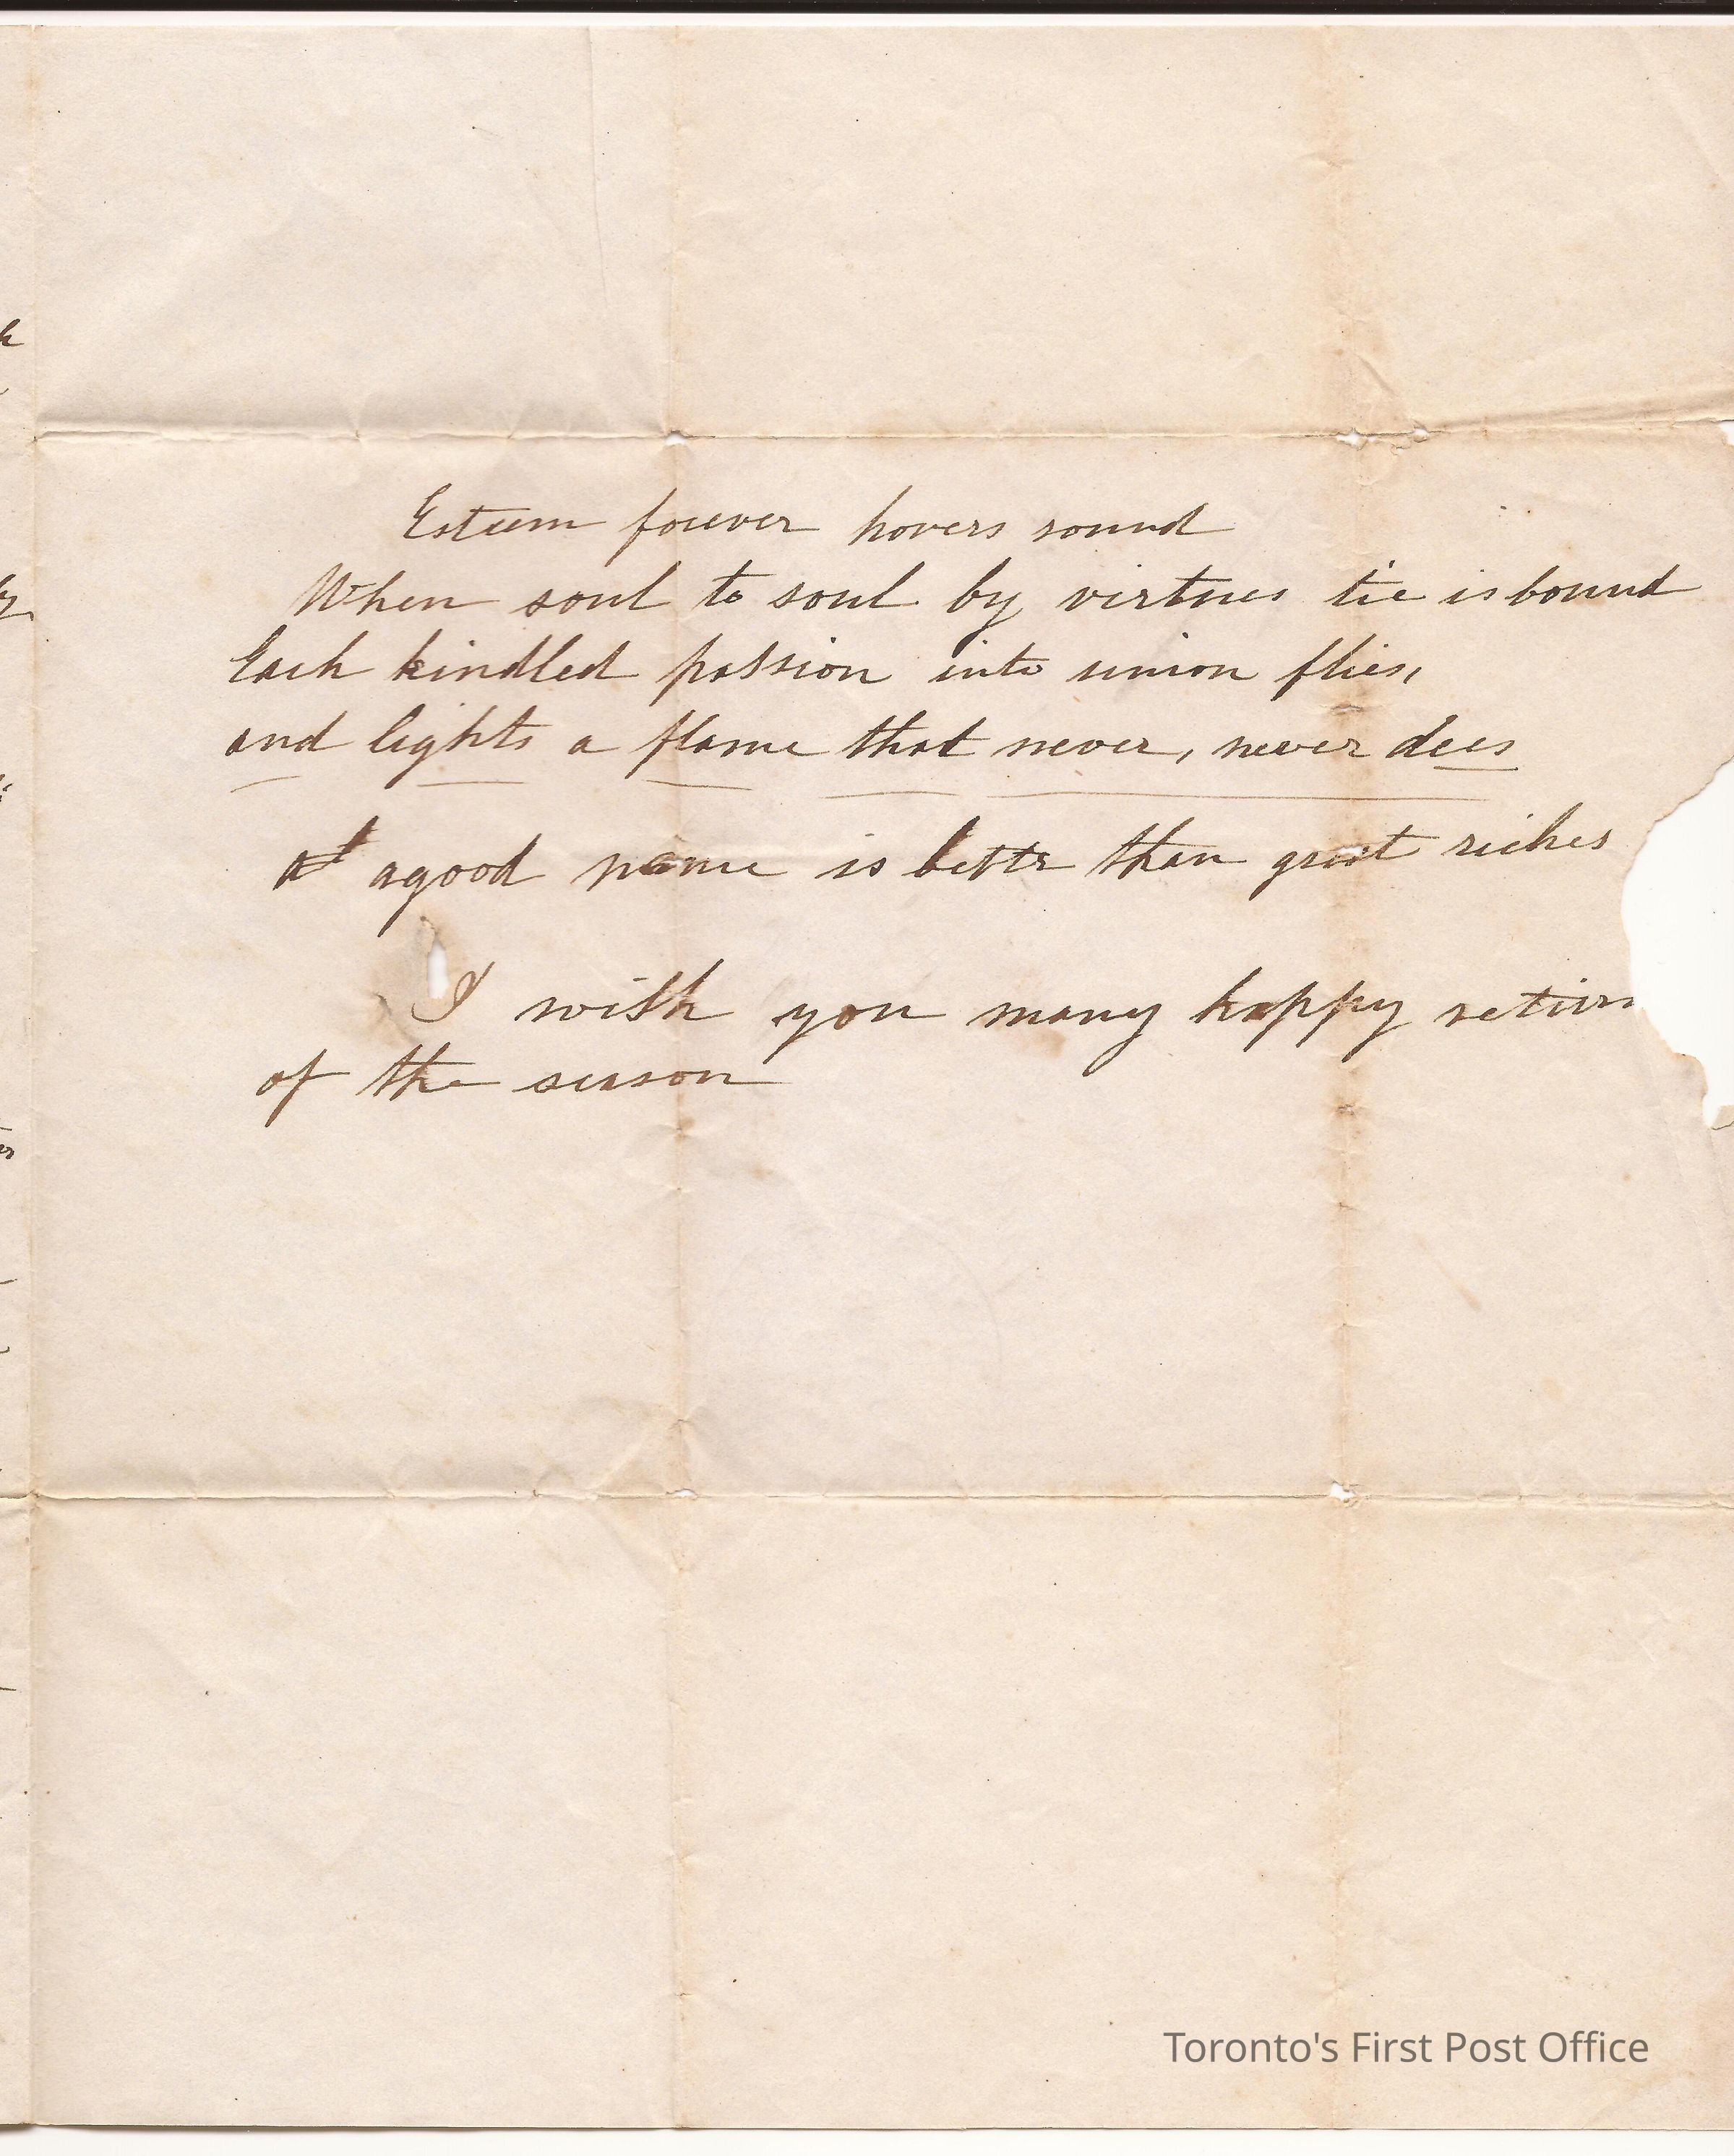 Esteem forever hovers round
When soul to soul by virtues tie is bound
Each kindled passion into union flies,
and lights a flame that never, never dees
a good name is bettr than great riches
I wish you many happy return
of the season
Toronto's First Post Office